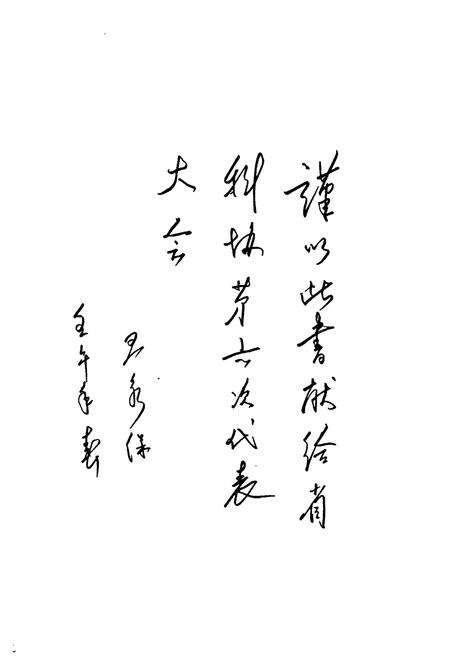 謹以此书献给省
科协第六次代表
大会
永保
壬午年春